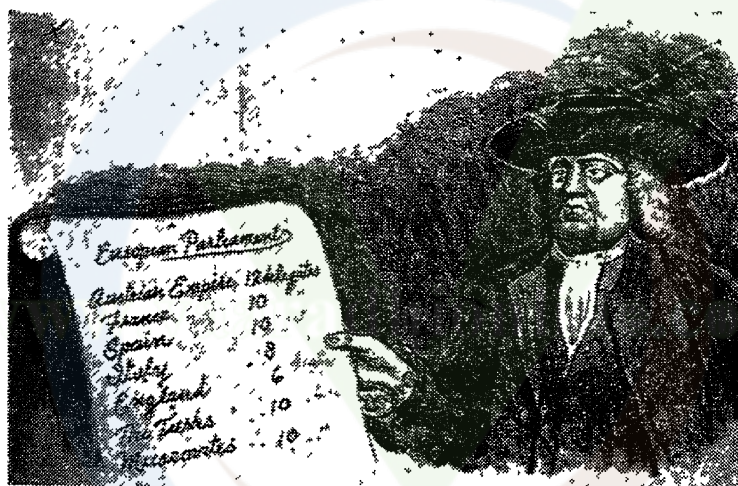 European Parliament
Austrian Empire 12 delegates
France 10
Spain 10
Italy 8
England 6
The Turks 10
Muscovites 10